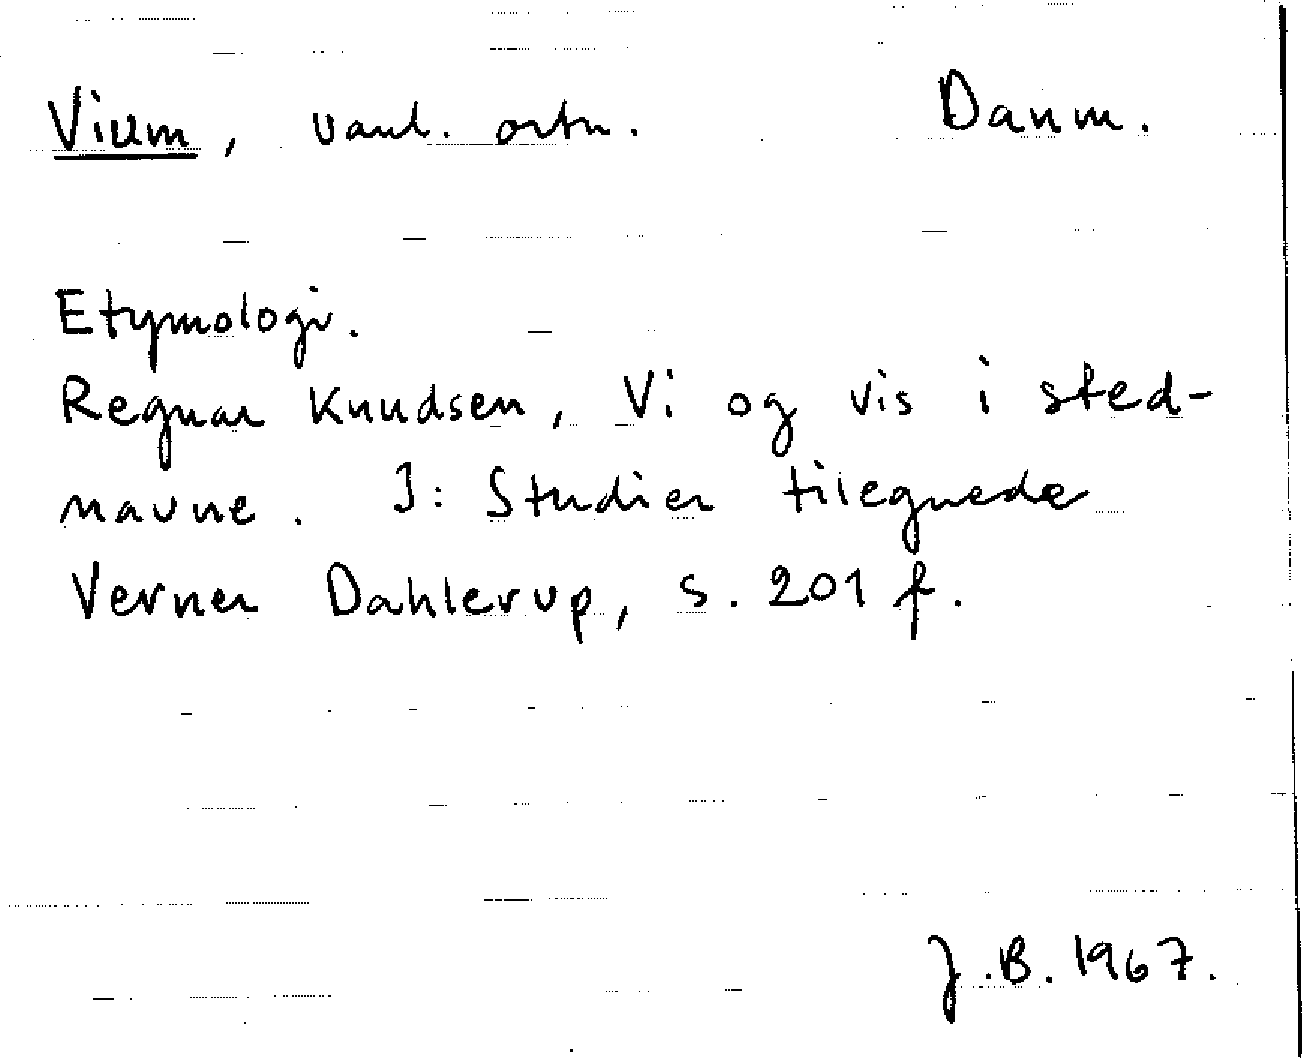 Vium, vanl. ortn. Danm.
Etymologi.
Regnar Knudsen, Vi og vis i sted-
navne. I: Studier tilegnede
Verner Dahlerup, s. 201 f.
J.B. 1967.